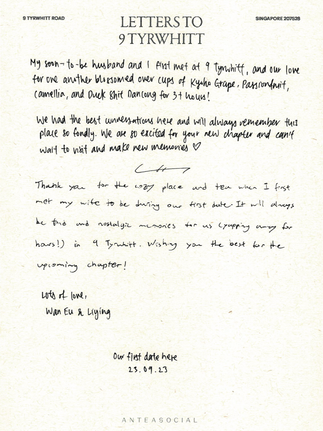 9 TYRWHITT ROAD
SINGAPORE 207528
LETTERS TO
9 TYRWHITT
My soon-to-be husband and I first met at 9 Tyrwhitt, and our love
for one another blossomed over cups of Kyoho Grape, Passionfruit,
Camellia, and Duck Shit Dancong for 3+ hours!
We had the best conversations here and will always remember this
place so fondly. We are so excited for your new chapter and can't
wait to visit and make new memories ♡
Thank you for the cozy place and tea when I first
met my wife to be during our first date. It will always
be this and nostalgic memories for us (yapping away for
hours!) in 9 Tyrwhitt. Wishing you the best for the
upcoming chapter!
Lots of love,
Wan Eu & Liying
Our first date here
23.09.23
ANTEASOCIAL